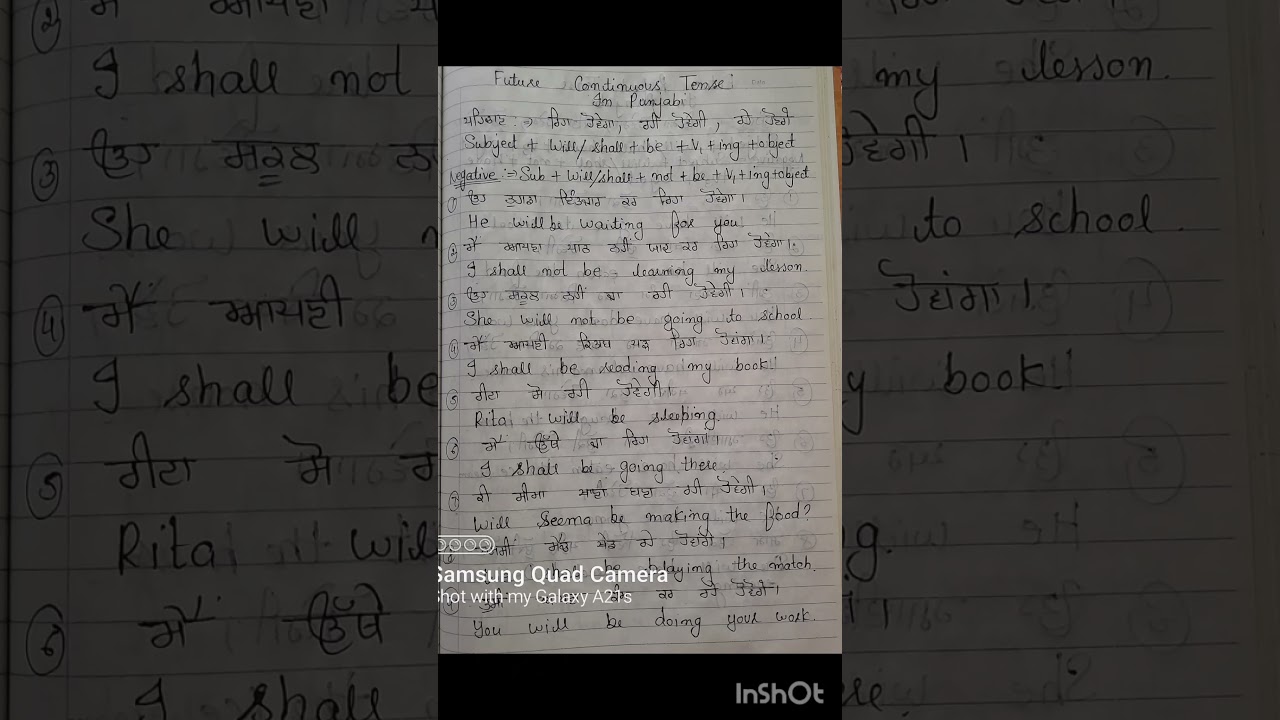 Future Continuous Tense
In Punjabi
ਪਹਿਚਾਣ :-> ਰਿਹਾ ਹੋਵੇਗਾ, ਰਹੀ ਹੋਵੇਗੀ, ਰਹੇ ਹੋਵੋਗੇ
Subject + will/shall + be + V₁ + ing + object
Negative :-> Sub + will/shall + not + be + V₁ + ing + object
① ਉਹ ਤੁਹਾਡਾ ਇੰਤਜ਼ਾਰ ਕਰ ਰਿਹਾ ਹੋਵੇਗਾ।
He will be waiting for you
② ਮੈਂ ਆਪਣਾ ਪਾਠ ਨਹੀਂ ਯਾਦ ਕਰ ਰਿਹਾ ਹੋਵੇਗਾ।
I shall not be learning my lesson.
③ ਉਹ ਸਕੂਲ ਨਹੀਂ ਜਾ ਰਹੀ ਹੋਵੇਗੀ।
She will not be going to school.
④ ਮੈਂ ਆਪਣੀ ਕਿਤਾਬ ਪੜ੍ਹ ਰਿਹਾ ਹੋਵਾਂਗਾ।
I shall be reading my book!
⑤ ਰੀਟਾ ਸੋ ਰਹੀ ਹੋਵੇਗੀ।
Rita will be sleeping.
⑥ ਮੈਂ ਉੱਥੇ ਜਾ ਰਿਹਾ ਹੋਵਾਂਗਾ।
I shall be going there
⑦ ਕੀ ਸੀਮਾ ਖਾਣਾ ਬਣਾ ਰਹੀ ਹੋਵੇਗੀ।
Will Seema be making the food?
ਮੈਚ ਖੇਡ ਰਹੇ ਹੋਵਾਂਗੇ।
be playing the match.
Samsung Quad Camera
Shot with my Galaxy A21s
ਕਰ ਰਹੇ ਹੋਵੋਗੇ।
You will be doing your work.
InShOt